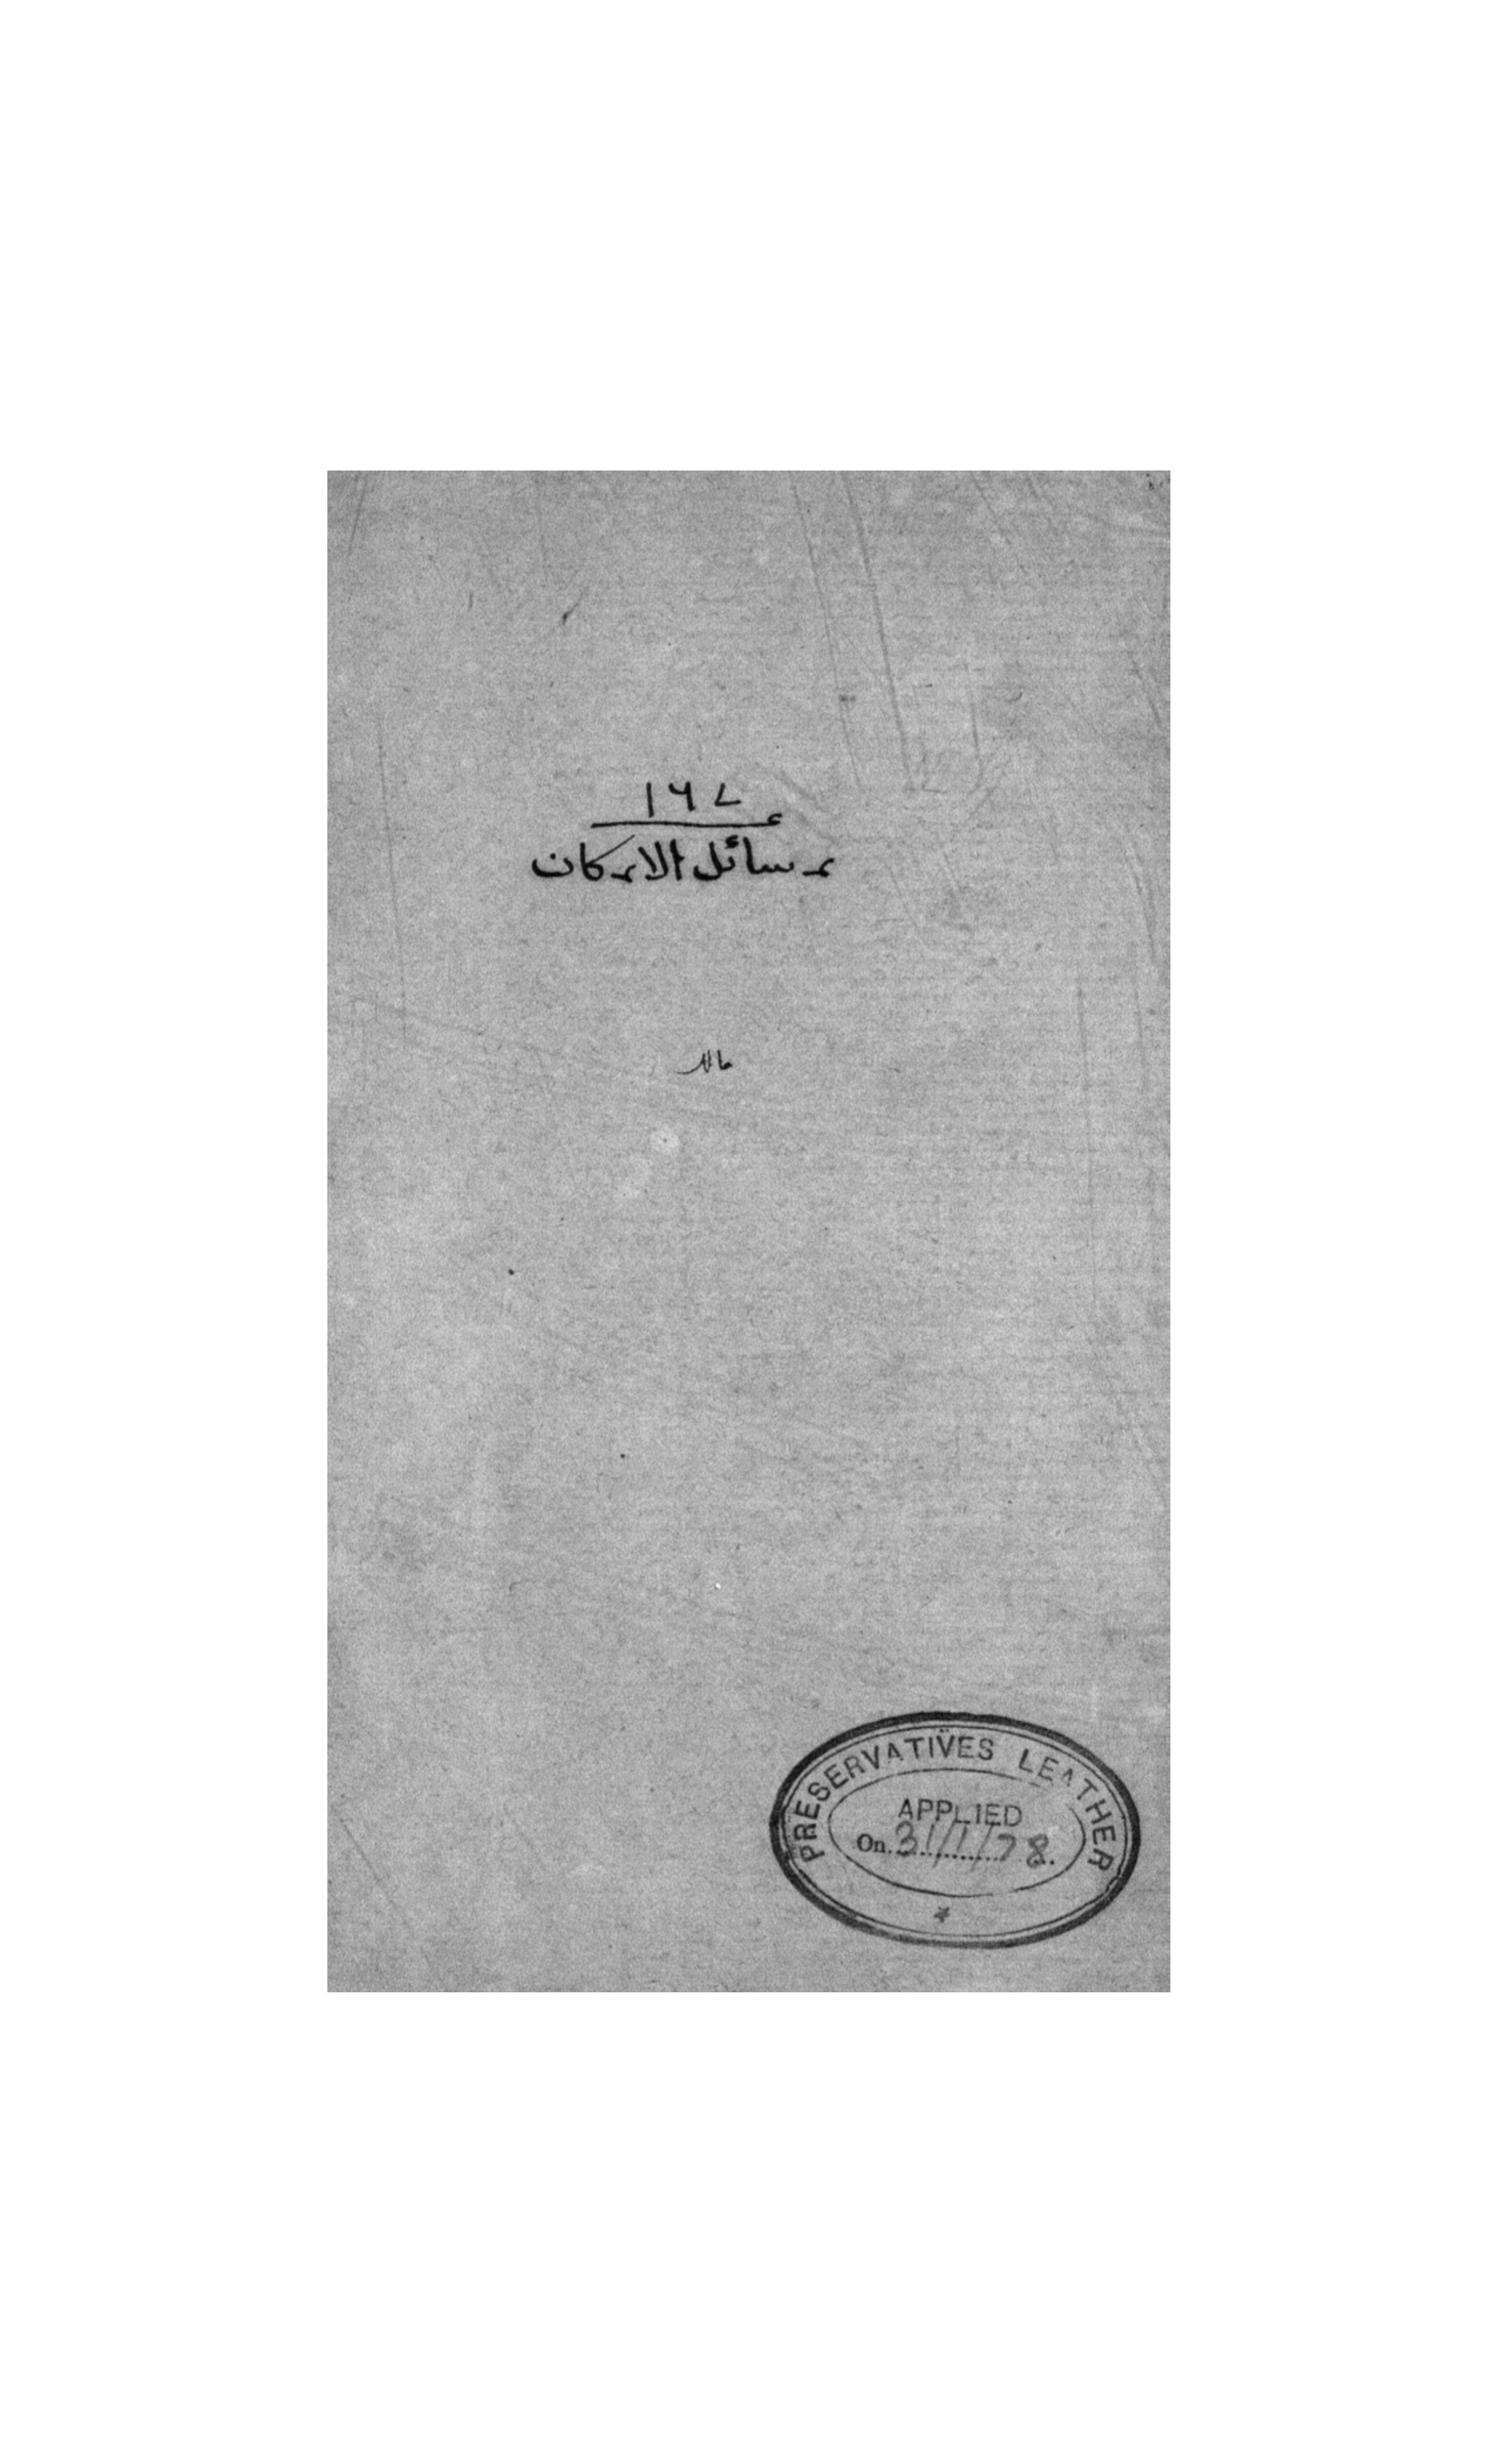 ۱۶۷
رسائل الارکان
PRESERVATIVES LEATHER
APPLIED
On 31/1/78